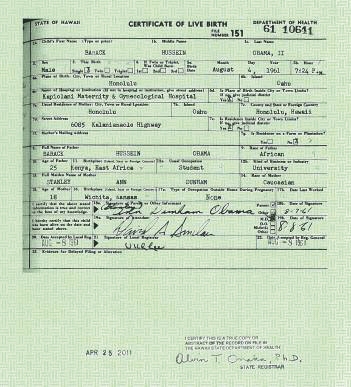 STATE OF HAWAII CERTIFICATE OF LIVE BIRTH DEPARTMENT OF HEALTH
FILE NUMBER 151 61 10641
1a. Child's First Name (Type or print) 1b. Middle Name 1c. Last Name
BARACK HUSSEIN OBAMA, II
2. Sex 3. This Birth 4. If Twin or Triplet, Was Child Born Month Day Year Hour
Male Single Twin Triplet 1st 2nd 3rd August 4, 1961 7:24 P.
6a. Place of Birth: City, Town or Rural Location 6b. Island
Honolulu Oahu
6c. Name of Hospital or Institution (If not in hospital or institution, give street address) 6d. Is Place of Birth Inside City or Town Limits?
Kapiolani Maternity & Gynecological Hospital Yes No
7a. Usual Residence of Mother: City, Town or Rural Location 7b. Island 7c. County and State or Foreign Country
Honolulu Oahu Honolulu, Hawaii
7d. Street Address 7e. Is Residence Inside City or Town Limits?
6085 Kalanianaole Highway Yes No
7f. Mother's Mailing Address 7g. Is Residence on a Farm or Plantation?
Yes No
8. Full Name of Father 9. Race of Father
BARACK HUSSEIN OBAMA African
10. Age of Father 11. Birthplace (Island, State or Foreign Country) 12a. Usual Occupation 12b. Kind of Business or Industry
25 Kenya, East Africa Student University
13. Full Maiden Name of Mother 14. Race of Mother
STANLEY ANN DUNHAM Caucasian
15. Age of Mother 16. Birthplace (Island, State or Foreign Country) 17a. Type of Occupation Outside Home During Pregnancy 17b. Date Last Worked
18 Wichita, Kansas None
I certify that the above stated information is true and correct to the best of my knowledge. 18a. Signature of Parent or Other Informant Parent Other 18b. Date of Signature
Ann Dunham Obama 8-7-61
I hereby certify that this child was born alive on the date and hour stated above. 19a. Signature of Attendant M.D. D.O. Midwife Other 19b. Date of Signature
8-8-61
20. Date Accepted by Local Reg. 21. Signature of Local Registrar 22. Date Accepted by Reg. General
AUG -8 1961 AUG -8 1961
23. Evidence for Delayed Filing or Alteration
APR 25 2011
I CERTIFY THIS IS A TRUE COPY OR
ABSTRACT OF THE RECORD ON FILE IN
THE HAWAII STATE DEPARTMENT OF HEALTH
Alvin T. Onaka, Ph.D.
STATE REGISTRAR